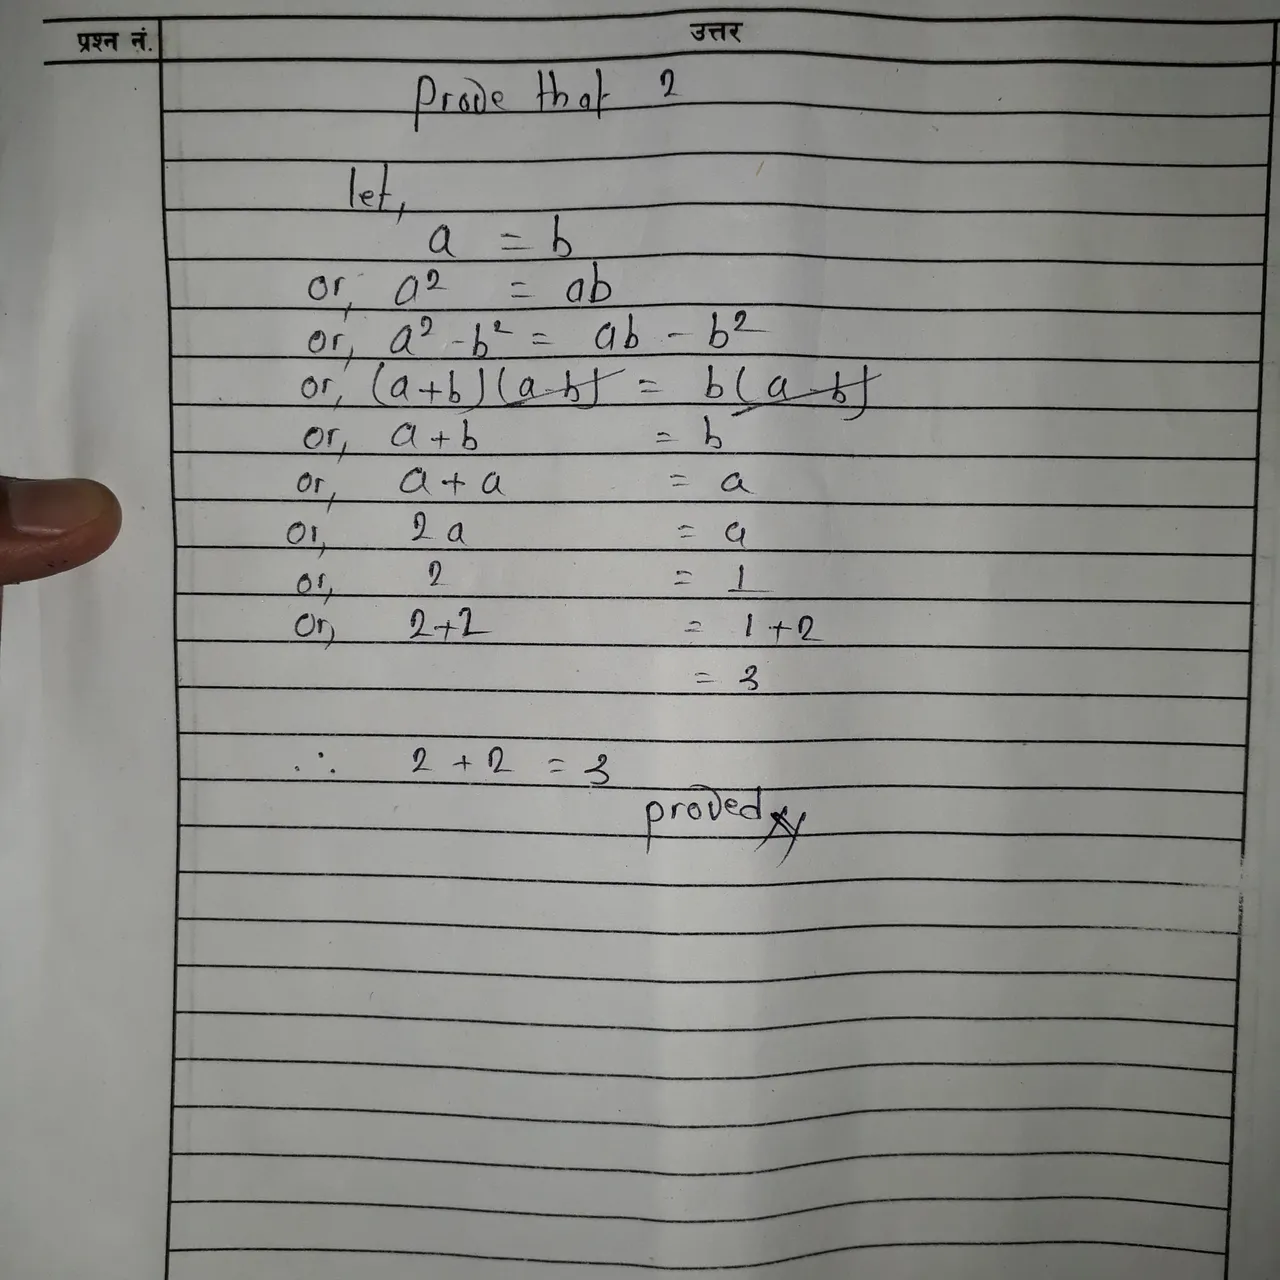 प्रश्न नं. उत्तर
Prove that 2
let,
a = b
or, a² = ab
or, a² - b² = ab - b²
or, (a+b)(a-b) = b(a-b)
or, a + b = b
or, a + a = a
or, 2a = a
or, 2 = 1
or, 2+2 = 1+2
= 3
∴ 2 + 2 = 3
proved